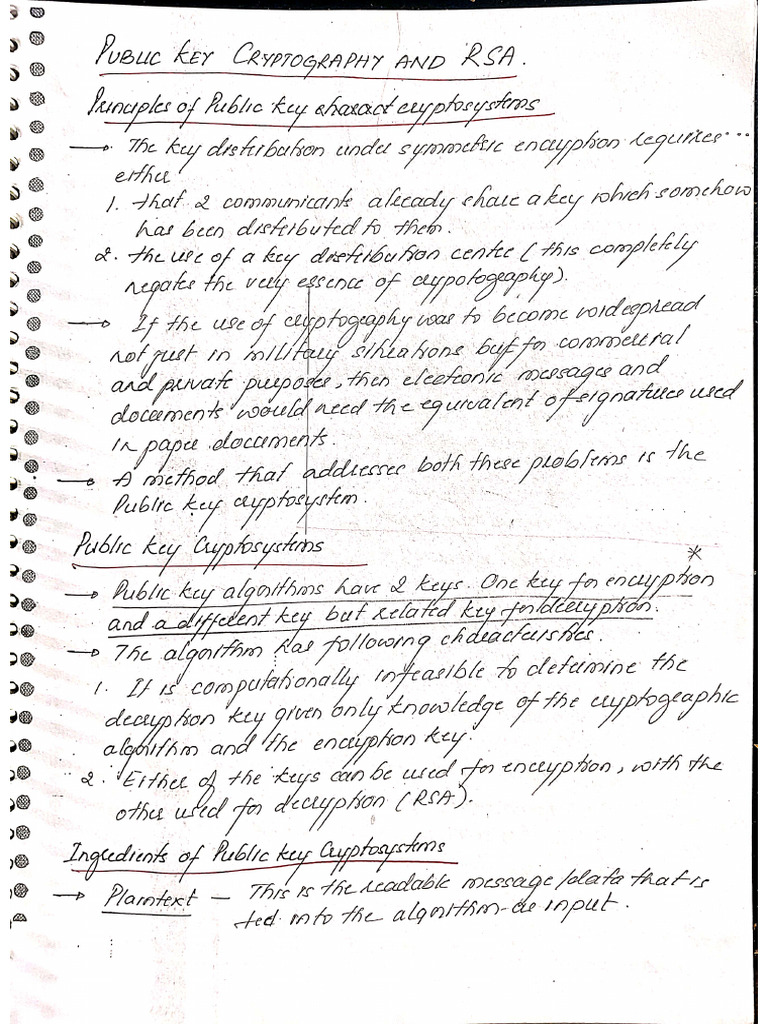 PUBLIC KEY CRYPTOGRAPHY AND RSA.
Principles of Public key charact cryptosystems
→ The key distribution under symmetric encryption requires...
either
1. that 2 communicants already share a key which somehow
has been distributed to them.
2. the use of a key distribution center (this completely
negates the very essence of crypotography).
→ If the use of cryptography was to become widespread
not just in military situations but for commercial
and private purposes, then electronic messages and
documents would need the equivalent of signatures used
in paper documents.
→ A method that addresses both these problems is the
Public key cryptosystem.
Public key Cryptosystems
*
→ Public key algorithms have 2 keys. One key for encryption
and a different key but related key for decryption.
→ The algorithm has following characteristics.
1. It is computationally infeasible to determine the
decryption key given only knowledge of the cryptographic
algorithm and the encryption key.
2. Either of the keys can be used for encryption, with the
other used for decryption (RSA).
Ingredients of Public key Cryptosystems
→ Plaintext - This is the readable message/data that is
fed into the algorithm as input.